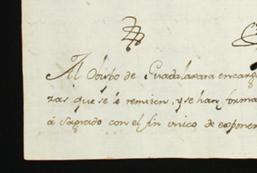 Al Obispo de Guadalaxara encarg
zas, que se le remiten, y se han forma
á sagrado con el fin unico de exponer